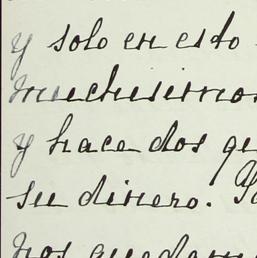 y solo en esto
muchisimos
y hace dos
su dinero.
nos quedam